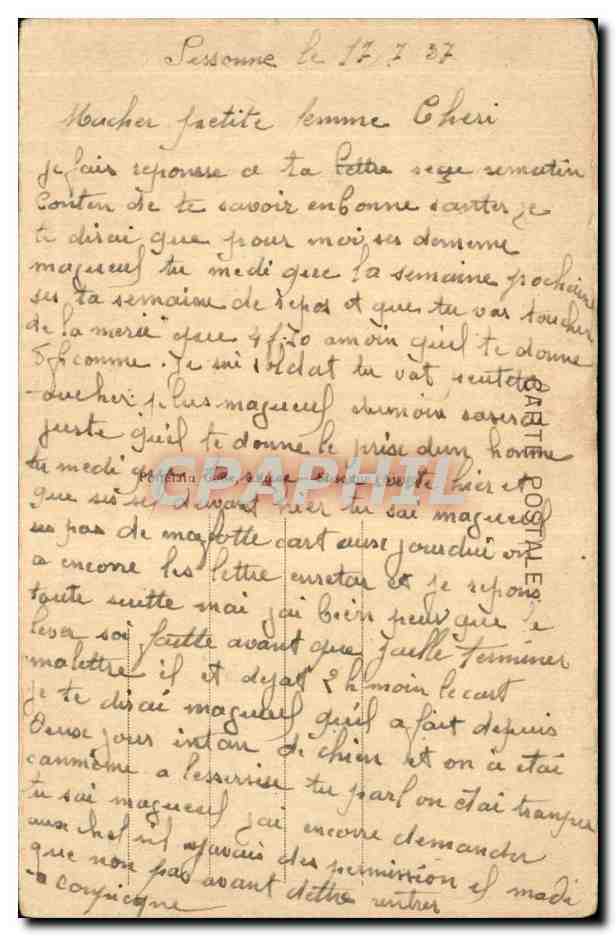 Sissonne le 17 7 37
Macher petite femme Cheri
je fais reponsse a ta lettre reçue sematin
Conten de te savoir enbonne santer je
te dirai que pour moi ses dememe
magueul tu medi que la semaine pochaine
ses ta semaine de repos et que tu vas toucher
de la merie que 4f70 amoin quil te donne
comme. Je sui soldat tu vat
toucher plus magueul aumoin
juste quil te donne le prise dun homme
tu medi que hier et
que si devant hier tu sai magueul
ses pas de ma fotte cart aux jourdui on
a encorre les lettre enretar et je repons
toute suitte mai jai bien peur que le
lever soi faitte avant que jaille terminer
malettre il et dejat 2h moin lecart
je te dirai magueul quil a fait depuis
deux jour intan de chien et on a étai
canmême a lesservise tu parl on étai tranper
tu sai magueul jai encorre demander
aux chef sil yavais des permission il madi
que non pas avant dettre rentrer
a conpiegne
CARTE POSTALE
CPARHIL